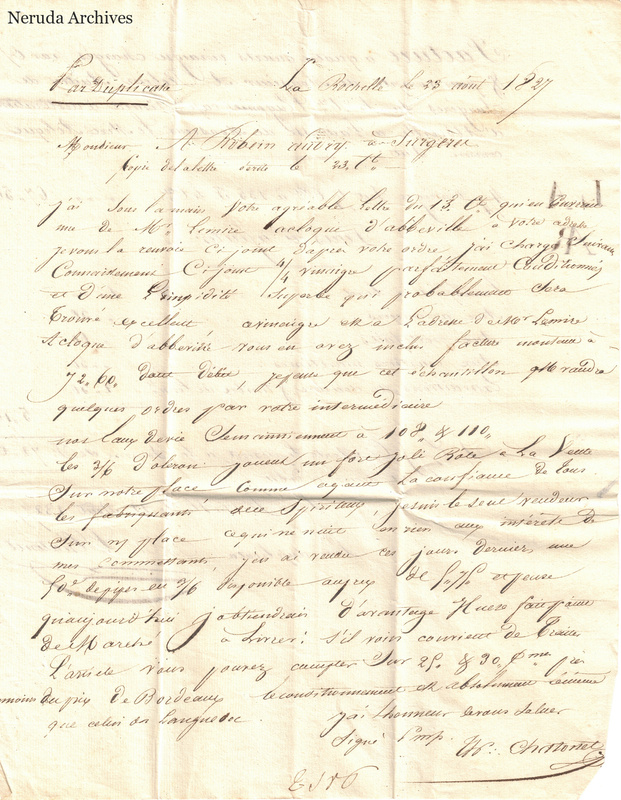 Neruda Archives
Par Duplicata La Rochelle le 23 aout 1827
Monsieur A Ribein à Surgeres
Copie de la lettre écrite le 23. Ct.
j'ai sous la main votre agréable lettre du 13 Ct.
me de Mr. Lemire acloque d'abbeville à votre adresse
je vous la renvoie Ci joint d'après votre ordre j'ai chargé Suivant
Connaissement Ci joint 4/4 vinaigre parfaitement Conditionnés
et d'une Limpidité superbe qui probablement sera
trouvé excellent, vinaigre est à L'adresse de Mr Lemire
Acloque d'abbeville vous en avez inclus facture montant à
72.60. dont débité, je pense que cet échantillon me vaudra
quelques ordres par votre intermédiaire
nos Eaux de vie à 108 & 110
les 3/6 d'oleron jouent un fort joli Role à La Vente
Sur notre place Comme ayant La confiance de tous
les fabriquants de Spiritueux, je suis le seul vendeur
Sur place ce qui ne nuit en rien aux intérêts de
mes Commettants, j'en ai vendu ces jours Derniers une
50e de pipes en 3/6 disponible au prix de et pense
qu'aujourd'hui j'obtiendrais d'avantage
de Marché à Livrer; s'il vous convient de traiter
L'article vous pouvez compter Sur 25 & 30
moins du prix de Bordeaux le conditionnement est absolument
que celui du Languedoc. j'ai l'honneur de vous saluer
Signé